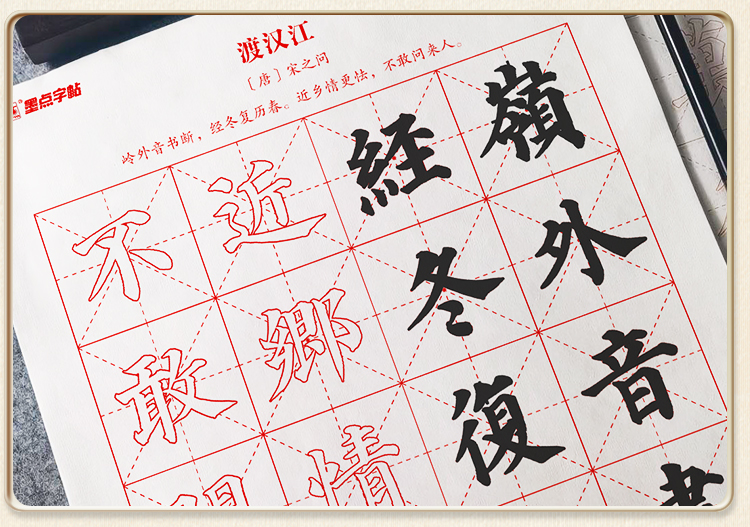 渡汉江
〔唐〕宋之问
岭外音书断，经冬复历春。近乡情更怯，不敢问来人。
墨点字帖
嶺外音
經冬復
近鄉情
不敢